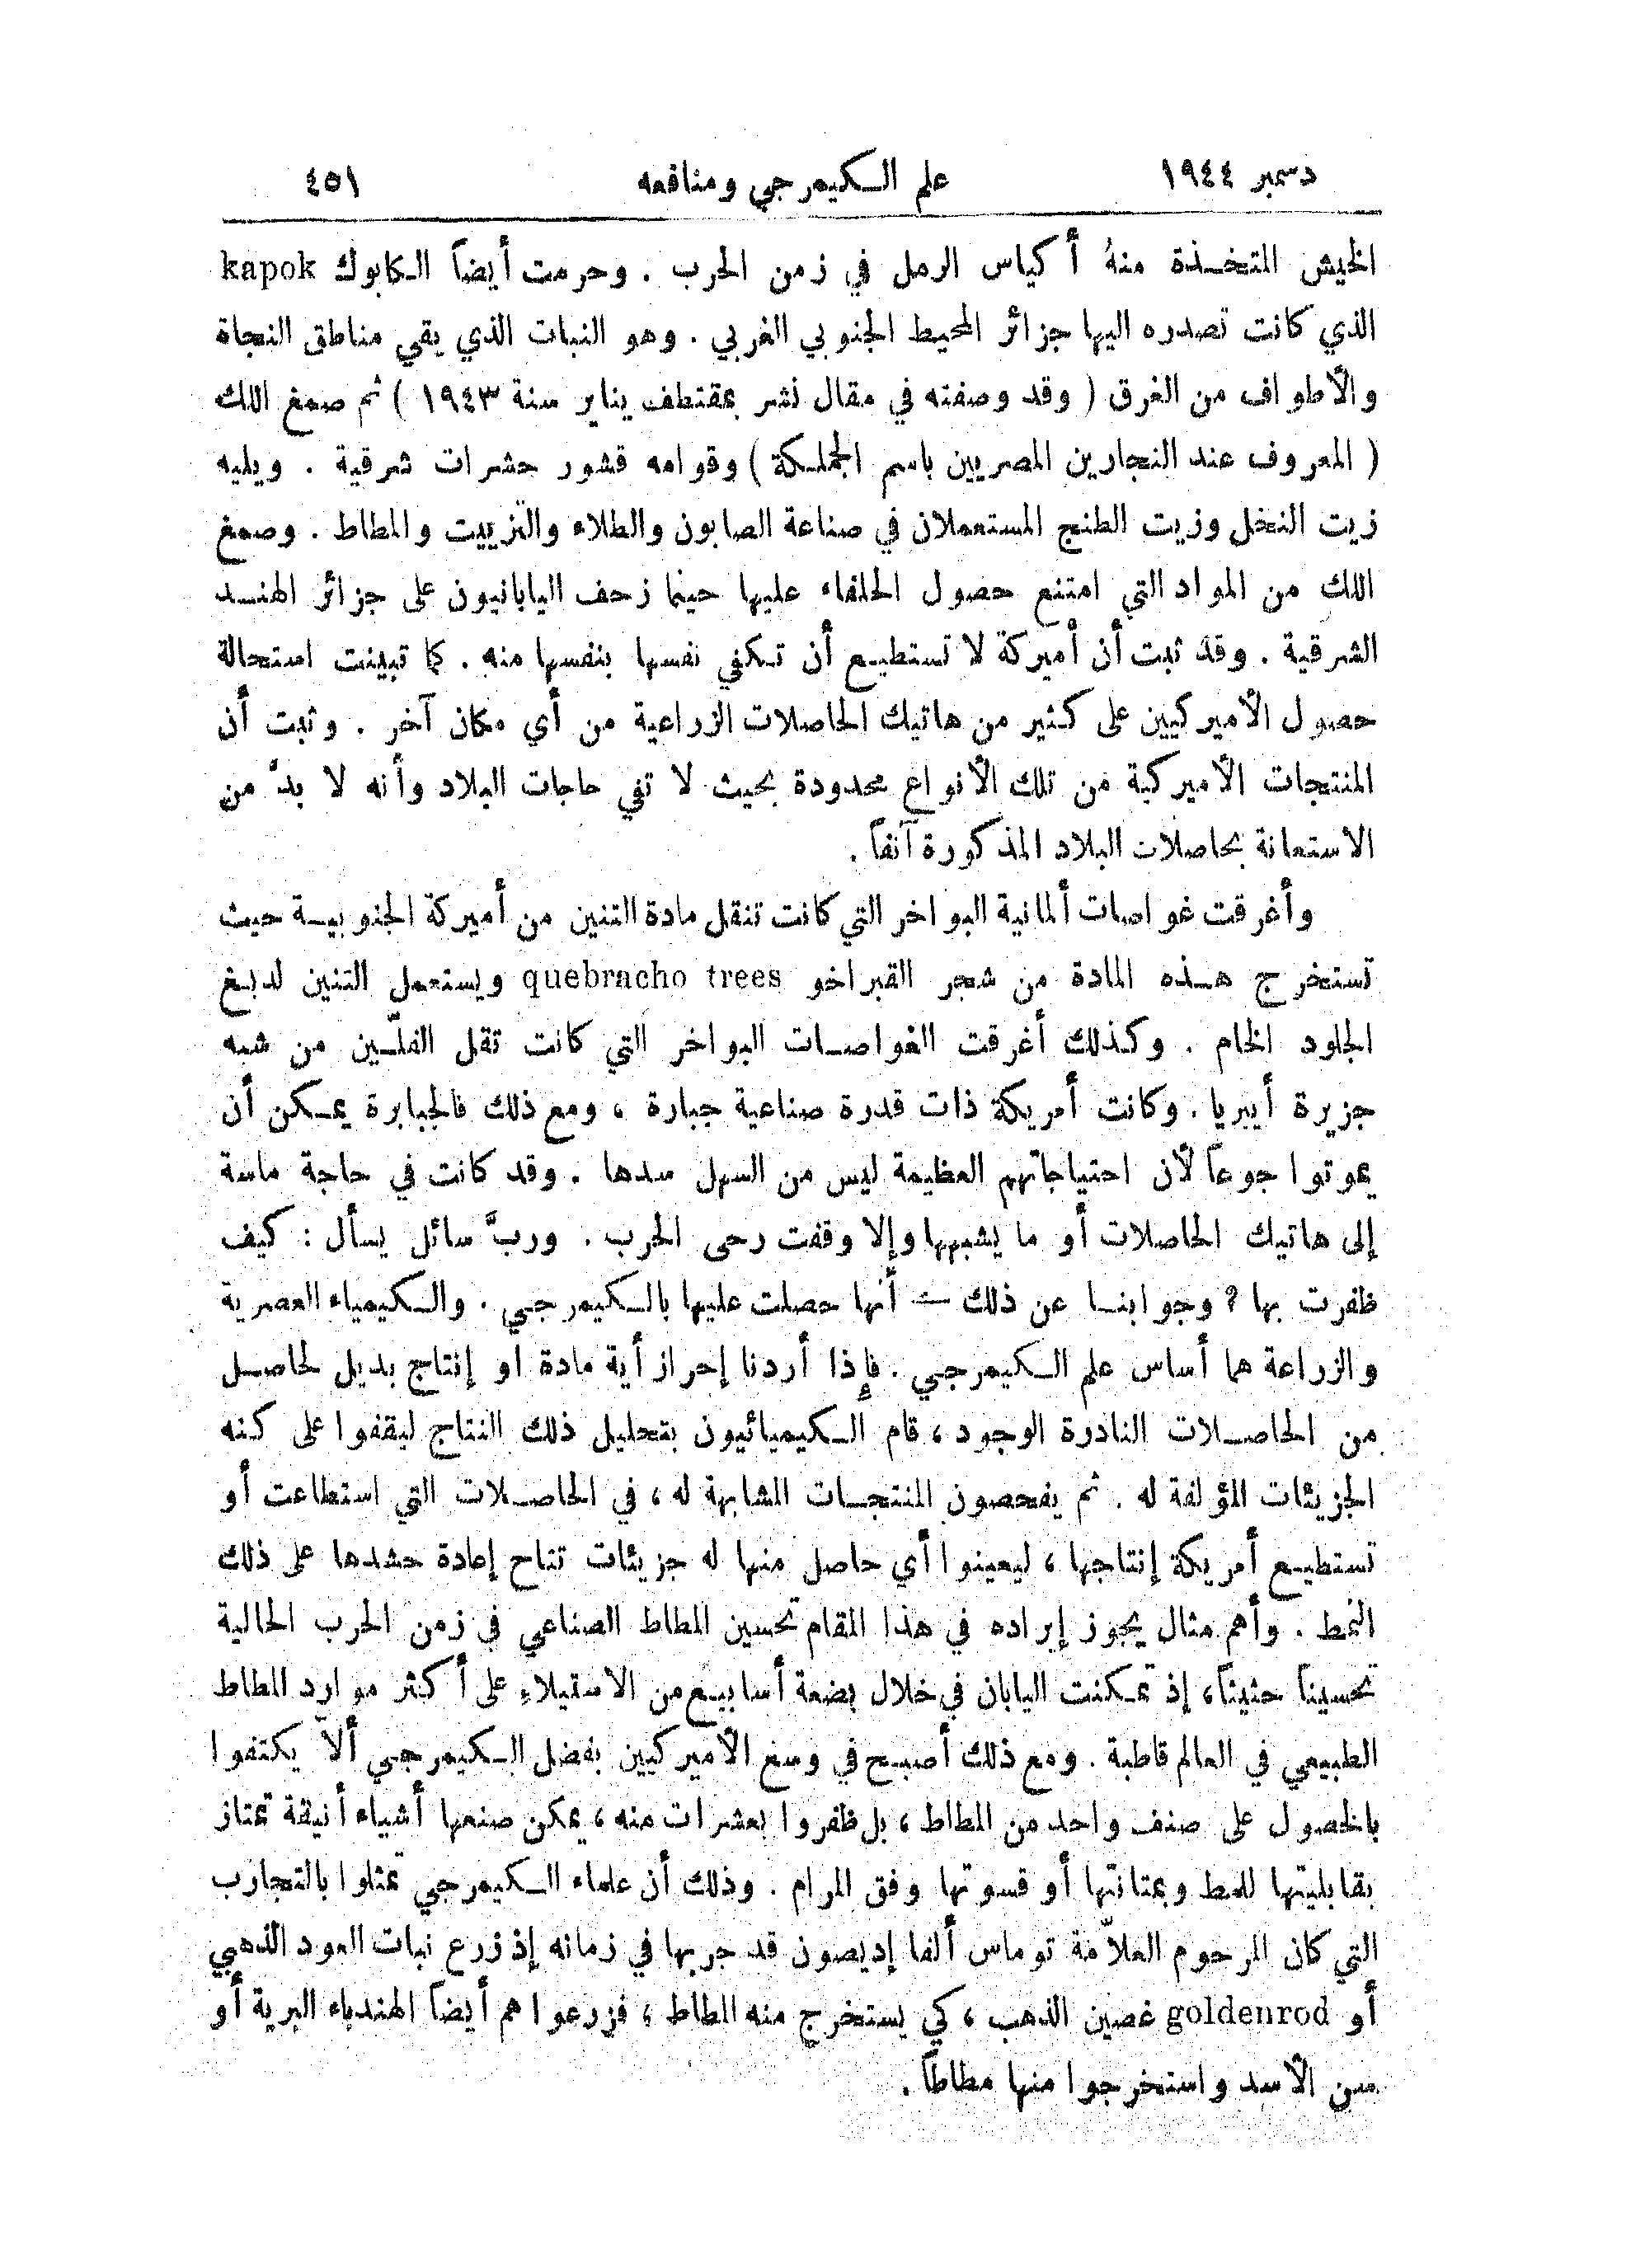 دسمبر ١٩٤٤ علم الكيمرجي ومنافعه ٤٥١
الخيش المتخذة منهُ أكياس الرمل في زمن الحرب . وحرمت أيضاً الكابوك kapok
الذي كانت تصدره اليها جزائر المحيط الجنوبي الغربي . وهو النبات الذي يقي مناطق النجاة
والأطواف من الغرق ( وقد وصفته في مقال نشر بمقتطف يناير سنة ١٩٤٣ ) ثم صمغ اللك
( المعروف عند النجارين المصريين باسم الجملكة ) وقوامه قشور حشرات شرقية . ويليه
زيت النخل وزيت الطنج المستعملان في صناعة الصابون والطلاء والتزييت والمطاط . وصمغ
اللك من المواد التي امتنع حصول الحلفاء عليها حينما زحف اليابانيون على جزائر الهند
الشرقية . وقد ثبت أن أميركة لا تستطيع أن تكفي نفسها بنفسها منه . كما تبينت استحالة
حصول الأميركيين على كثير من هاتيك الحاصلات الزراعية من أي مكان آخر . وثبت أن
المنتجات الأميركية من تلك الأنواع محدودة بحيث لا تفي حاجات البلاد وأنه لا بدَّ من
الاستعانة بحاصلات البلاد المذكورة آنفاً .
وأغرقت غواصات ألمانية البواخر التي كانت تنقل مادة التنين من أميركة الجنوبية حيث
تستخرج هذه المادة من شجر القبراخو quebracho trees ويستعمل التنين لدبغ
الجلود الخام . وكذلك أغرقت الغواصات البواخر التي كانت تقل الفلّين من شبه
جزيرة أيبريا . وكانت أمريكة ذات قدرة صناعية جبارة ، ومع ذلك فالجبابرة يمكن أن
يموتوا جوعاً لأن احتياجاتهم العظيمة ليس من السهل سدها . وقد كانت في حاجة ماسة
إلى هاتيك الحاصلات أو ما يشبهها وإلا وقفت رحى الحرب . وربَّ سائل يسأل : كيف
ظفرت بها ؟ وجوابنا عن ذلك — أنها حصلت عليها بالكيمرجي . والكيمياء العصرية
والزراعة هما أساس علم الكيمرجي . فإذا أردنا إحراز أية مادة او إنتاج بديل لحاصل
من الحاصلات النادرة الوجود ، قام الكيميائيون بتحليل ذلك النتاج ليقفوا على كنه
الجزيئات المؤلفة له . ثم يفحصون المنتجات المشابهة له ، في الحاصلات التي استطاعت أو
تستطيع أمريكة إنتاجها ، ليعينوا أي حاصل منها له جزيئات تتاح إعادة حشدها على ذلك
النمط . وأهم مثال يجوز إيراده في هذا المقام تحسين المطاط الصناعي في زمن الحرب الحالية
تحسيناً حثيثاً ، إذ تمكنت اليابان في خلال بضعة أسابيع من الاستيلاءِ على أكثر موارد المطاط
الطبيعي في العالم قاطبة . ومع ذلك أصبح في وسع الأميركيين بفضل الكيمرجي ألاّ يكتفوا
بالحصول على صنف واحد من المطاط ، بل ظفروا بعشرات منه ، يمكن صنعها أشياء أنيقة تمتاز
بقابليتها للمط وبمتانتها أو قسوتها وفق المرام . وذلك أن علماء الكيمرجي تمثلوا بالتجارب
التي كان المرحوم العلاّمة توماس ألفا إديصون قد جربها في زمانه إذ زرع نبات العود الذهبي
أو goldenrod غصين الذهب ، كي يستخرج منه المطاط ، فزرعوا هم أيضاً الهندباء البرية أو
سن الأسد واستخرجوا منها مطاطاً .